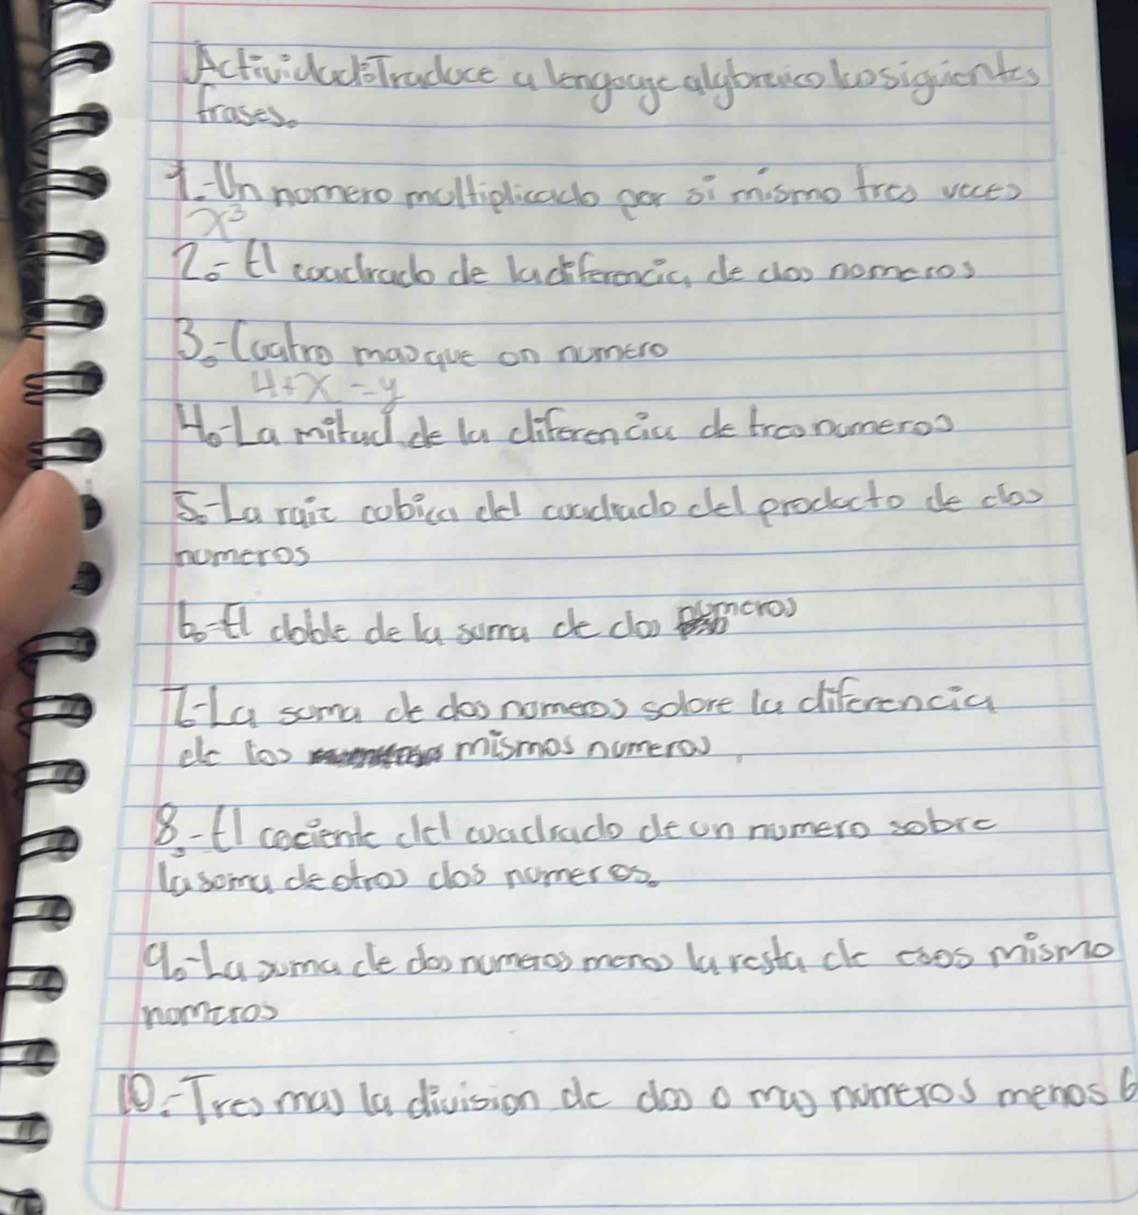 Actividad: Traduce a lenguaje algebraico las siguientes
frases.
1.- Un numero multiplicado por si mismo tres veces
x³
2.- El cuadrado de la diferencia de dos numeros
3.- Cuatro mas que un numero
4+x=y
4.- La mitad de la diferencia de tres numeros
5.- La raiz cubica del cuadrado del producto de dos
numeros
6.- El doble de la suma de dos numeros
7.- La suma de dos numeros sobre la diferencia
de los mismos numeros
8.- El cociente del cuadrado de un numero sobre
la suma de otros dos numeros.
9.- La suma de dos numeros menos la resta de esos mismo
numeros
10.- Tres mas la division de dos o mas numeros menos 6